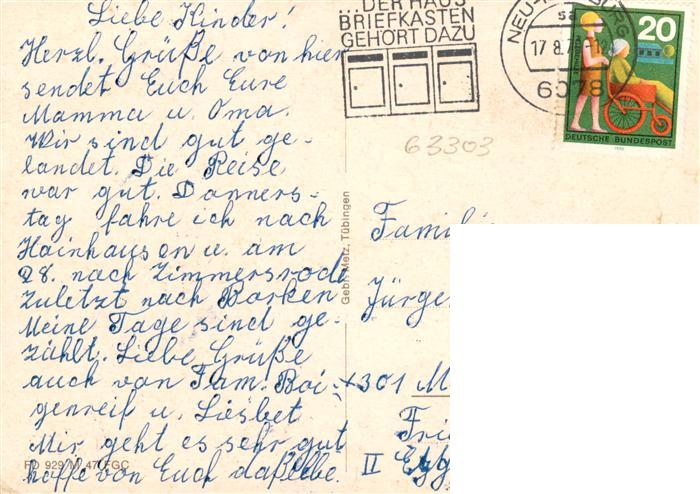 Liebe Kinder!
Herzl. Grüße von hier
sendet Euch Eure
Mamma u. Oma.
Wir sind gut ge-
landet. Die Reise
war gut. Donners-
tag fahre ich nach
Hainhausen u. am
28. nach Zimmersrode
zuletzt nach Borken
Meine Tage sind ge-
zählt. Liebe Grüße
auch von Fam. Boi-
genreif u. Liesbet
Mir geht es sehr gut
hoffe von Euch daßelbe.
929 47 FGC
Gebr. Metz, Tübingen
DER HAUS
BRIEFKASTEN
GEHÖRT DAZU
17 8.7
6078
20
DEUTSCHE BUNDESPOST
63303
Famili
Jürge
+301 M
Fri
II